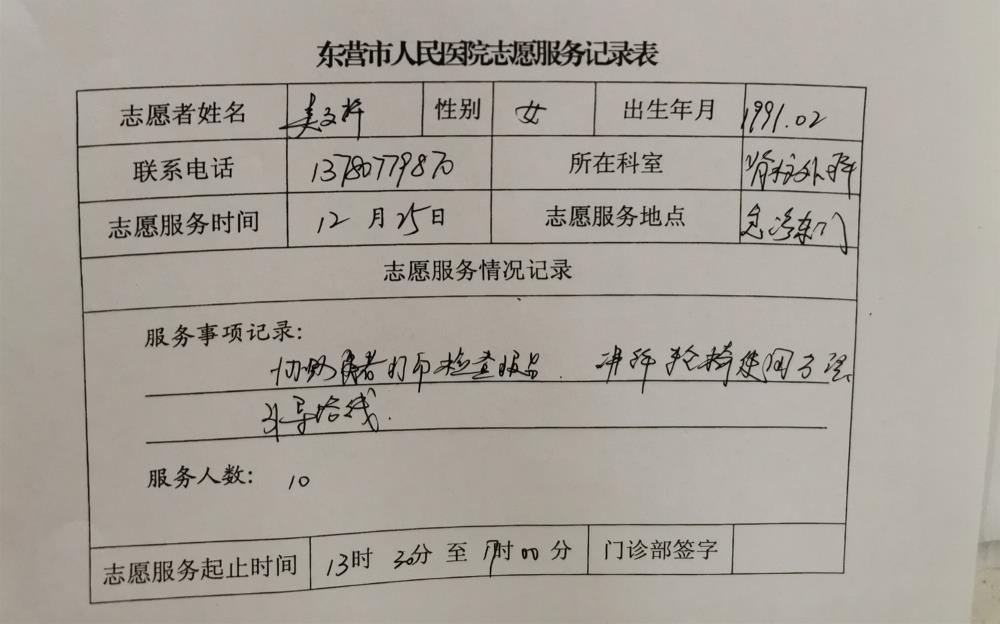 东营市人民医院志愿服务记录表
志愿者姓名 性别 女 出生年月 1991.02
联系电话 13780779870 所在科室 脊柱外科
志愿服务时间 12月25日 志愿服务地点 急诊东门
志愿服务情况记录
服务事项记录:
协助患者打印检查报告 讲解轮椅使用方法
引导路线.
服务人数: 10
志愿服务起止时间 13时30分至17时00分 门诊部签字